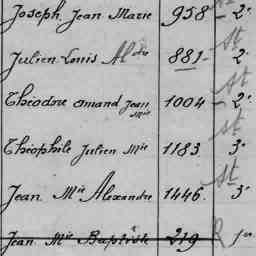 Joseph Jean Marie 958 - 2e
Julien Louis Aldre 881 - St 2e
Théodore amand Jean Mie 1004 - St 2e
Théophile Julien Mie 1183 St 3e
Jean Mie Alexandre 1446. St 3e
Jean Mie Baptiste 219 R 1er